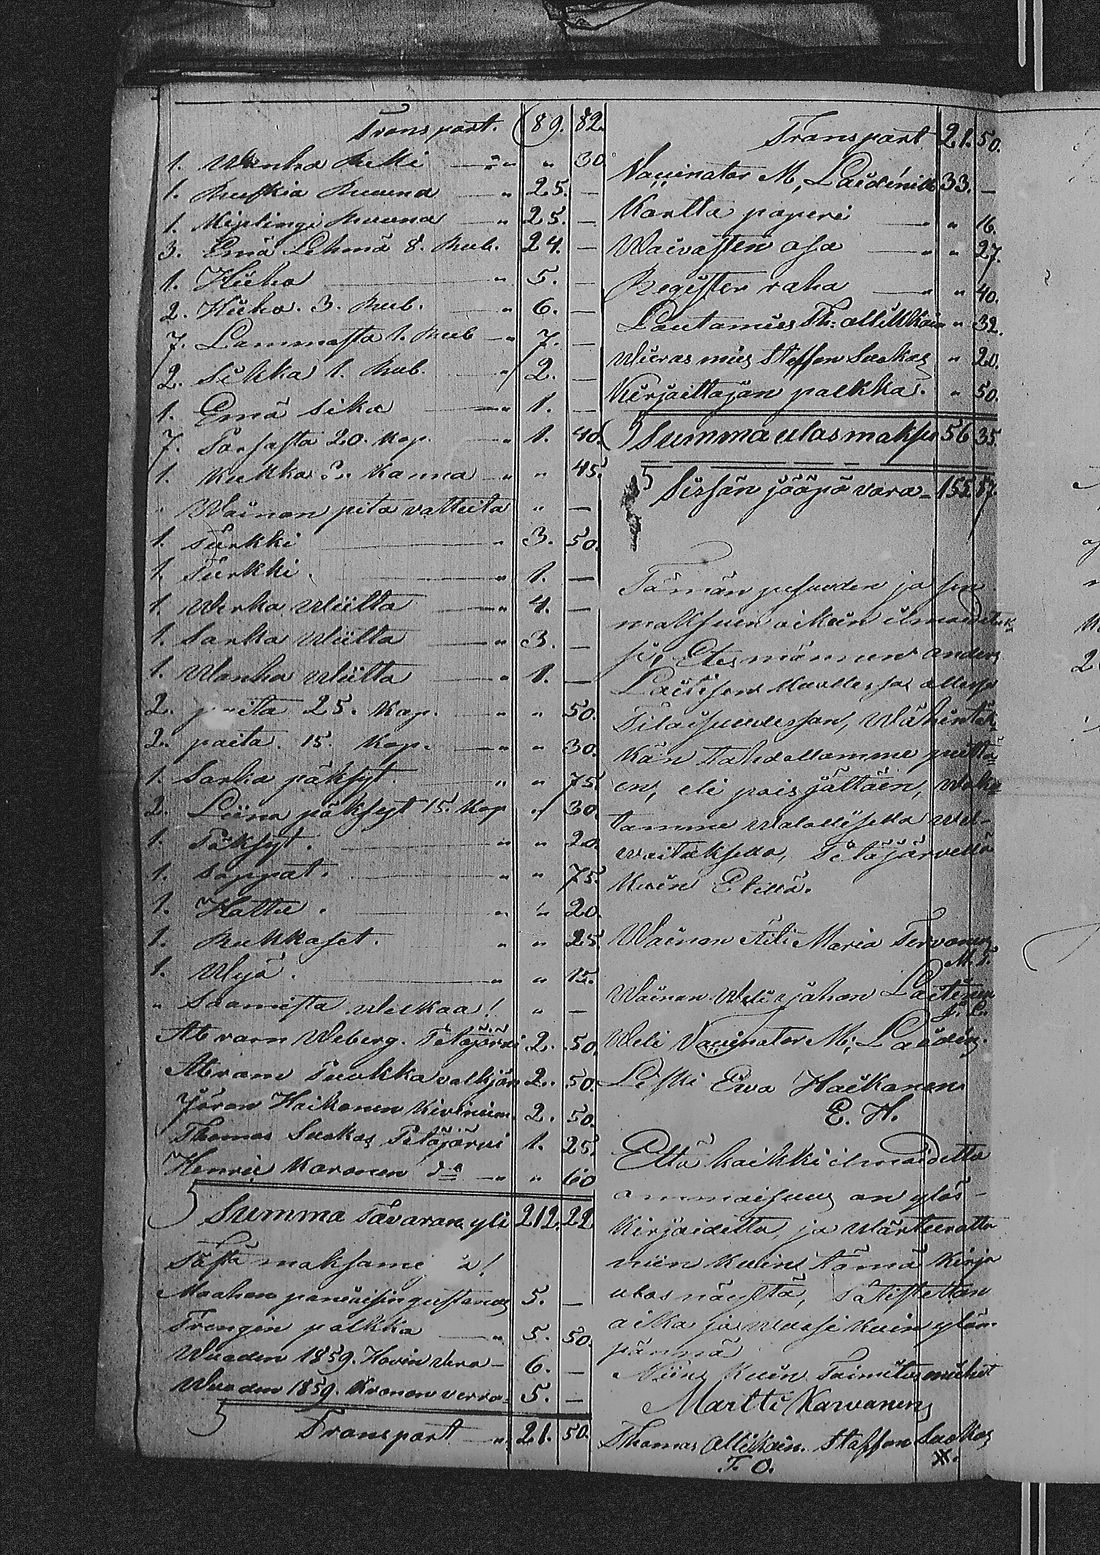 Transport. 89. 82.
1. Wanha Rekki " " 30.
1. Ruskia Ruuna " 25. —
1. Kiplingi Ruuna " 25. —
3. Emä Lehmä 8. Rub. 24. —
1. Hieho " 5. —
2. Hieho. 3. Rub. " 6. —
7. Lammasta 1. Rub " 7. —
2. Sikka 1. Rub. " 2. —
1. Emä sika " 1. —
7. 20. Kop. " 1. 40.
1. Kukko Kanna " " 45.
" Wainan pito vatteita " —
1. Turkki " 3. 50.
1. Turkki. " 1. —
1. Werka Wiitta " 4. —
1. Sarka Wiitta " 3. —
1. Wanha Wiitta " 1. —
2. paita 25. Kop. " " 50.
2. paita. 15. Kop. " " 30.
1. Sarka päksyt " " 75.
2. Liina päksyt 15. Kop " 30.
1. Päksyt. " " 20.
1. Sappat. " " 75.
1. Hattu. " " 20.
1. Rukkaset. " " 25
1. Wyö. " " 15.
" Saamista Welkaa! " —
Abram Weberg. Petäjärvi 2. 50.
Abram Tuokko valkjär 2. 50.
Jöran Haikonen Kiviniem. 2. 50.
Thomas Suokas Petäjärvi 1. 25.
Henric Karonen d:o " " 60
Summa Tavaran yli 212. 22.
Tästä maksame a!
Maahan paneiisin 5. —
Trengin palkka " 5. 50.
Wuoden 1859. Hovin vero — 6. —
Wuoden 1859. Kronon verro — 5. —
Transport " 21. 50.
Transport 21. 50.
Vaccinator M, Laidinen 33. —
Kartta paperi " " 16.
Waivasten osa " " 27.
Register raha " " 40.
Lautamies Th: Ollikkain " 32.
Wieras mies Staffan Suokas " 20.
Kirjoittajan palkka. " 50.
Summa ulas maksu 56 35
Sissän jääpä vara — 155. 87.
Tämän pesuuden ja sen
maksuin oikein ilmoidetuk
si, Etesmännen Anders
Laitisen Kuollessa ollessa
Tilaisuudessan, Wähintäk
kän tahdollamme peittä
en, eli pois jättäin, Waku
tamme Walallisella wel-
woituksella, Petäjärvellä
Kuin Ellä.
Wainan Äiti Maria Tervonen
M. T.
Wainan Weli Johan Laitinen
J. L.
Weli Vaccinator M, Laidin.
Leski Ewa Haikonen
E. H.
Että kaikki ilmoidettu
ommaisuus on ylös-
Kirjoidettu, ja wärteerattu
niin kuin tämä kirja
ulos näyttä,
aika ja wuosi kuin ylöm-
pännä
Niin Kuin Toimitus miehet
Martti Karvonen
Thomas Ollikain. Staffan Suokas
T. O. X.